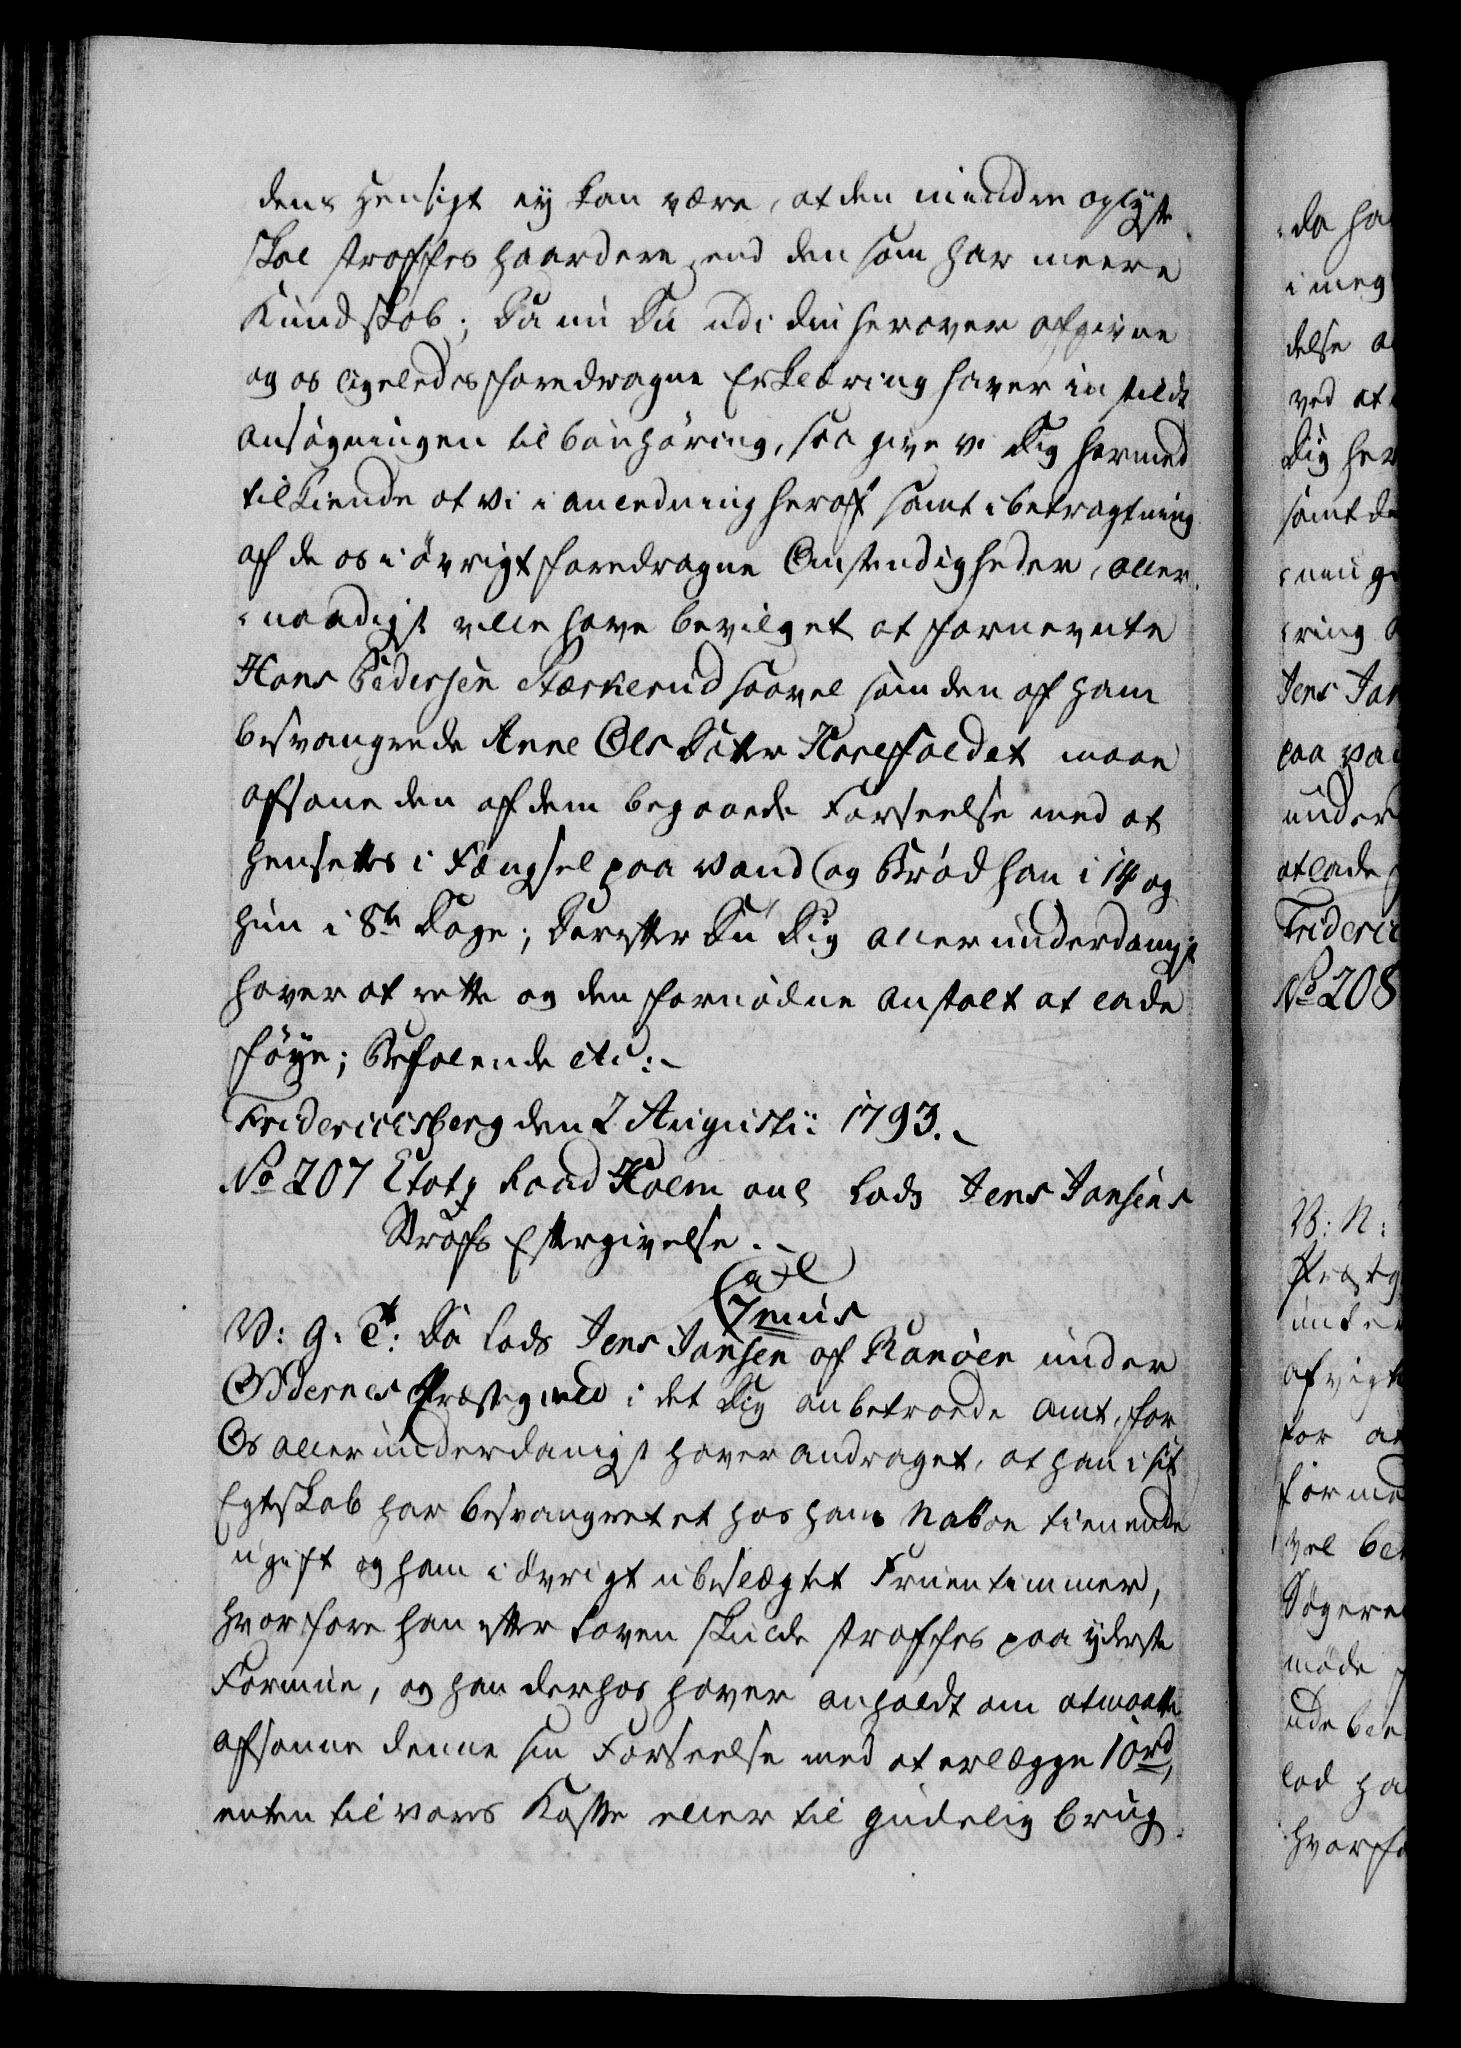 dens Hensigt ey kan være, at den mindre oplyste
skal straffes haardere end den som har meere
Kundskab; Da nu Du udi din herover afgivne
og os ligeledes foredragne Erklæring haver instilt
ansøgningen til bønhøring, saa give vi Dig hermed
tilkiende at vi i anledning heraf samt i betragtning
af de os i øvrigt foredragne Omstændigheder, aller-
-naadigst ville have bevilget at fornevnte
Hans Pedersen Stærkerud saavel som den af ham
besvangrede Anne Olsdatter Haresaldet maae
afsone den af dem begaaede Forseelse med at
hensettes i Fængsel paa Vand og Brød han i 14 og
hun i 8te Dage; Derefter Du Dig allerunderdanigst
haver at rette og den fornødne anstalt at lade
føye; Befalende etc:
Friderichsberg den 2 Augusti: 1793.
No 207 Etatz Raad Holm anl Lods Jens Jansens
Straffs Eftergivelse.
V: g: T: Da Lods Jens Jansen af Ranøen under
Oddernes Præstegield i det Dig anbetroede Amt, for
Os allerunderdanigst haver andraget, at han i sit
Egteskab har besvangret et hos hans Naboe tienende
ugift og ham i øvrigt ubeslægtet Fruentimmer,
hvorfore han efter Loven skulde straffes paa yderste
Formue, og han derhos haver anholdt om at maatte
afsonne denne sin Forseelse med at erlægge 10 rd,
enten til vores Kasse eller til gudelig brug
da ha
i meg
delse a
ved at
Dig her
samt de
ring
Jens Jan
paa va
under
at lade
Frideric
No 208
V: N:
Præstg
unter
afvigt
for at
formed
vel be
Søgere
møde
ude ble
lod ha
hvorfo